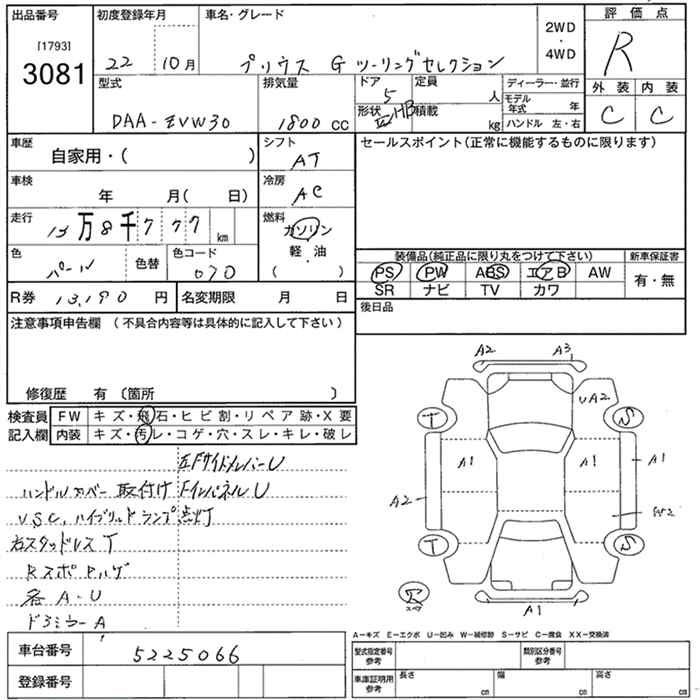 出品番号 初度登録年月 車名・グレード 評価点
[1793]
3081
22 10月 プリウス G ツーリングセレクション 2WD・4WD R
外装 内装
C C
型式 排気量 ドア 定員 ディーラー・並行
DAA-ZVW30 1800 cc 5 人 モデル年式 年
形状 HB 積載 kg ハンドル 左・右
車歴 シフト セールスポイント(正常に機能するものに限ります)
自家用・( ) AT
車検 冷房
年 月( 日) AC
走行 燃料
13万8千777 km ガソリン
軽・油
( )
色 パール 色替 色コード 070
装備品(純正品に限り丸をつけて下さい) 新車保証書
PS PW ABS エアB AW 有・無
SR ナビ TV カワ
R券 13,190 円 名変期限 月 日 後日品
注意事項申告欄 (不具合内容等は具体的に記入して下さい)
修復歴 有 〔箇所 〕
検査員 FW キズ・飛石・ヒビ割・リペア跡・X要
記入欄 内装 キズ・汚レ・コゲ・穴・スレ・キレ・破レ
Fサイドメンバーu
ハンドルカバー取付け FインパネルU
VSC,ハイブリッドランプ点灯
右スタッドレス T
Rスポ
各A-U
ドアミラーA
A2 A3
UA2
T S
A1 A1 A1
A2
T S
A1
A-キズ E-エクボ U-凹み W-補修跡 S-サビ C-腐食 XX-交換済
車台番号 5225066
型式指定番号 参考 類別区分番号 参考
登録番号
車庫証明用 参考 長さ cm 幅 cm 高さ cm